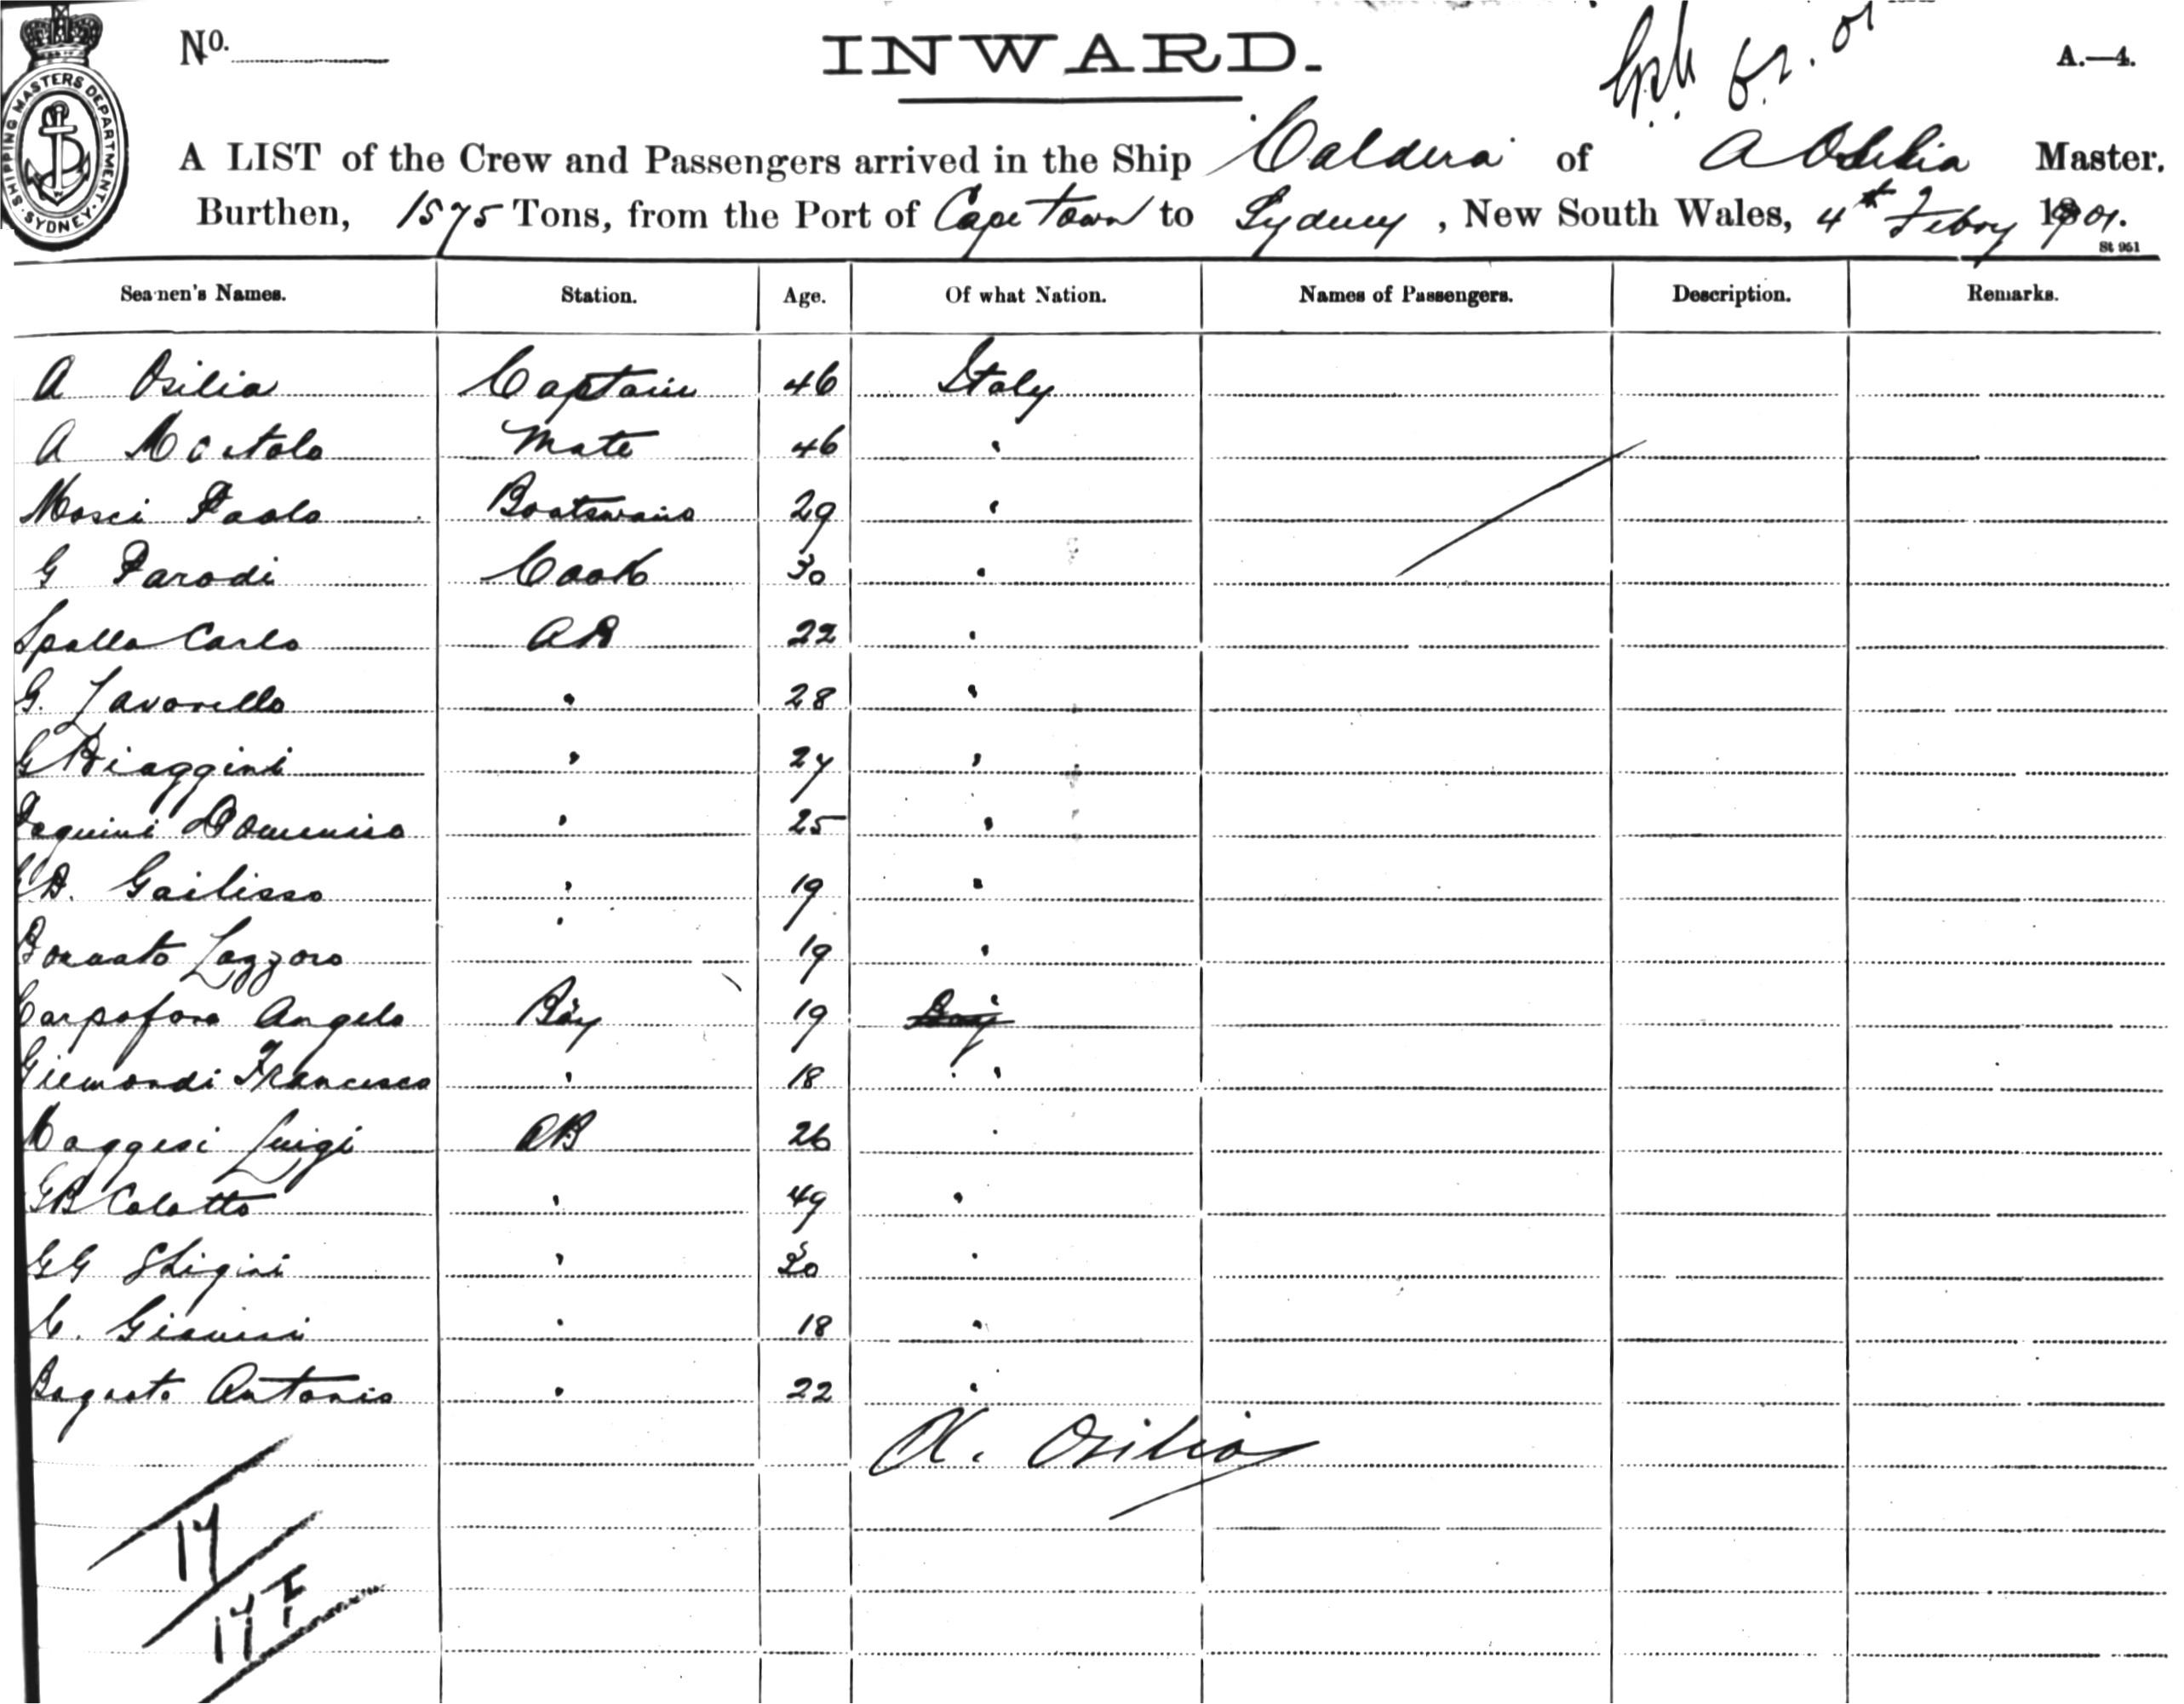 SHIPPING MASTERS DEPARTMENT. SYDNEY.
No.
INWARD.
A.—4.
A LIST of the Crew and Passengers arrived in the Ship "Caldera" of A Osilia Master.
Burthen, 1575 Tons, from the Port of Cape Town to Sydney, New South Wales, 4th Febry 1901.
St 951
Seamen's Names. Station. Age. Of what Nation. Names of Passengers. Description. Remarks.
A Osilia Captain 46 Italy
A Mate 46 "
Mosci Paolo Boatswain 29 "
G Parodi Cook 30 "
Spallo Carlo AB 22 "
G. Zavorello " 28 "
G Biaggini " 27 "
Domenico " 25 "
" 19 "
Lazzoro " 19 "
Carpofora Angelo Boy 19 "
Francesco " 18 "
Maggesi Luigi AB 26 "
GB Colotto " 49 "
GG Ghigini " 30 "
" 18 "
Antonio " 22 "
A. Osilia
17
17 F